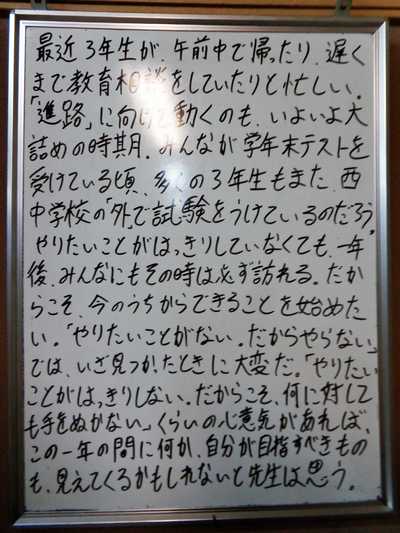 最近3年生が、午前中で帰ったり、遅く
まで教育相談をしていたりと忙しい。
「進路」に向けて動くのも、いよいよ大
詰めの時期。みんなが学年末テストを
受けている頃、多くの3年生もまた、西
中学校の「外」で試験をうけているのだろう。
やりたいことがはっきりしていなくても、一年
後、みんなにもその時は必ず訪れる。だか
らこそ、今のうちからできることを始めた
い。「やりたいことがない。だからやらない」
では、いざ見つかったときに大変だ。「やりたい
ことがはっきりしない。だからこそ、何に対して
も手をぬかない」くらいの心意気があれば、
この一年の間に何か、自分が目指すべきもの
も、見えてくるかもしれないと先生は思う。